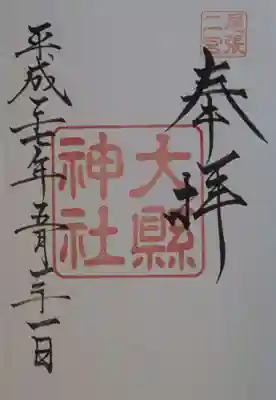 尾張
二宮
奉拝
大縣
神社
平成年五月十一日